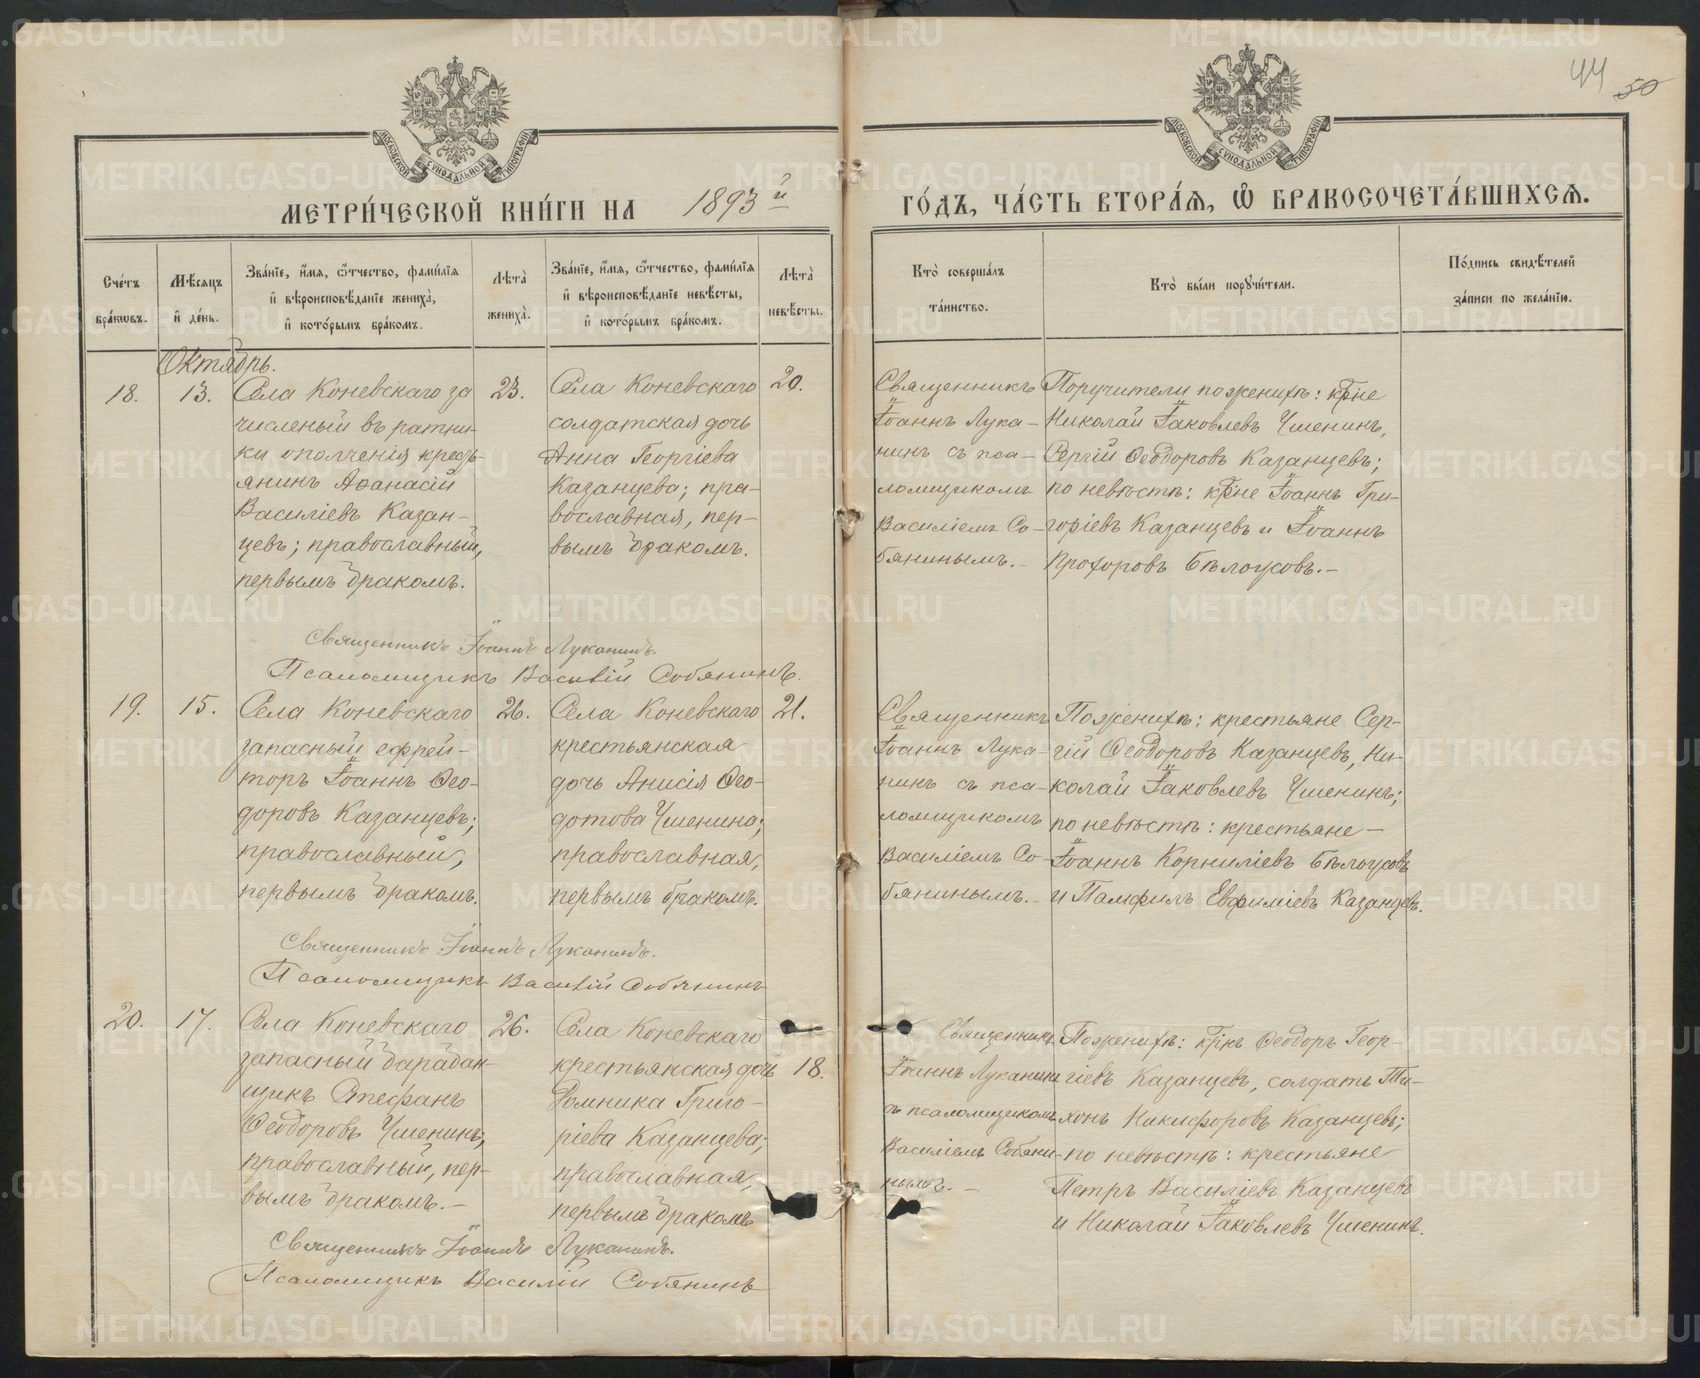 44 50
МЕТРИ́ЧЕСКОЙ КНИ́ГИ НА 1893й
ГО́ДЪ, ЧА́СТЬ ВТОРА́Я, Ѡ҆ БРАКОСОЧЕТА́ВШИХСЯ.
Сче́тъ бра́ковъ.
Мѣ́сяцъ и҆ де́нь.
Зва́нїе, и҆́мя, ѻ҆́тчество, фами́лїя
и҆ вѣроисповѣ́данїе жениха̀,
и҆ кото́рымъ бра́комъ.
Лѣта̀
жениха̀.
Зва́нїе, и҆́мя, ѻ҆́тчество, фами́лїя
и҆ вѣроисповѣ́данїе невѣ́сты,
и҆ кото́рымъ бра́комъ.
Лѣта̀
невѣ́сты.
Кто̀ соверша́лъ
та́инство.
Кто̀ бы́ли поручи́тели.
По́дпись свидѣ́телей
за́писи по жела́нїю.
Октябрь.
18.
13.
Села Коневскаго за
численый въ ратни-
ки ополченія кресть-
янинъ Аѳанасій
Василіевъ Казан-
цевъ; православный,
первымъ бракомъ.
23.
Села Коневскаго
солдатская дочь
Анна Георгіева
Казанцева; пра-
вославная, пер-
вымъ бракомъ.
20.
Священникъ
Іоаннъ Лука-
нинъ съ пса-
ломщикомъ
Василіемъ Со-
бянинымъ.-
Поручители по женихѣ: крне
Николай Іаковлевъ Ушенинъ,
Сергій Ѳеодоровъ Казанцевъ;
по невѣстѣ: крне Іоаннъ Гри-
горіевъ Казанцевъ и Іоаннъ
Прохоровъ Бѣлоусовъ.-
Священникъ Іоаннъ Луканинъ.
Псаломщикъ Василій Собянинъ.
19.
15.
Села Коневскаго
запасный ефрей-
торъ Іоаннъ Ѳео-
доровъ Казанцевъ;
православный,
первымъ бракомъ.
26.
Села Коневскаго
крестьянская
дочь Анисія Ѳео-
дотова Ушенина;
православная,
первымъ бракомъ.
21.
Священникъ
Іоаннъ Лука-
нинъ съ пса-
ломщикомъ
Василіемъ Со-
бянинымъ.-
По женихѣ: крестьяне Сер-
гій Ѳеодоровъ Казанцевъ, Ни-
колай Іаковлевъ Ушенинъ;
по невѣстѣ: крестьяне -
Іоаннъ Корниліевъ Бѣлоусовъ
и Памфилъ Евфиміевъ Казанцевъ.
Священникъ Іоаннъ Луканинъ.
Псаломщикъ Василій Собянинъ
20.
17.
Села Коневскаго
запасный барабан-
щикъ Стефанъ
Ѳеодоровъ Ушенинъ;
православный, пер-
вымъ бракомъ.-
26.
Села Коневскаго
крестьянская дочь
Домника Григо-
ріева Казанцева;
православная,
первымъ бракомъ
18.
Священникъ
Іоаннъ Луканинъ
съ псаломщикомъ
Василіемъ Собяни-
нымъ.-
По женихѣ: крнъ Ѳеодоръ Геор-
гіевъ Казанцевъ, солдатъ Ти-
хонъ Никифоровъ Казанцевъ;
по невѣстѣ: крестьяне
Петръ Василіевъ Казанцевъ
и Николай Іаковлевъ Ушенинъ.
Священникъ Іоаннъ Луканинъ.
Псаломщикъ Василій Собянинъ